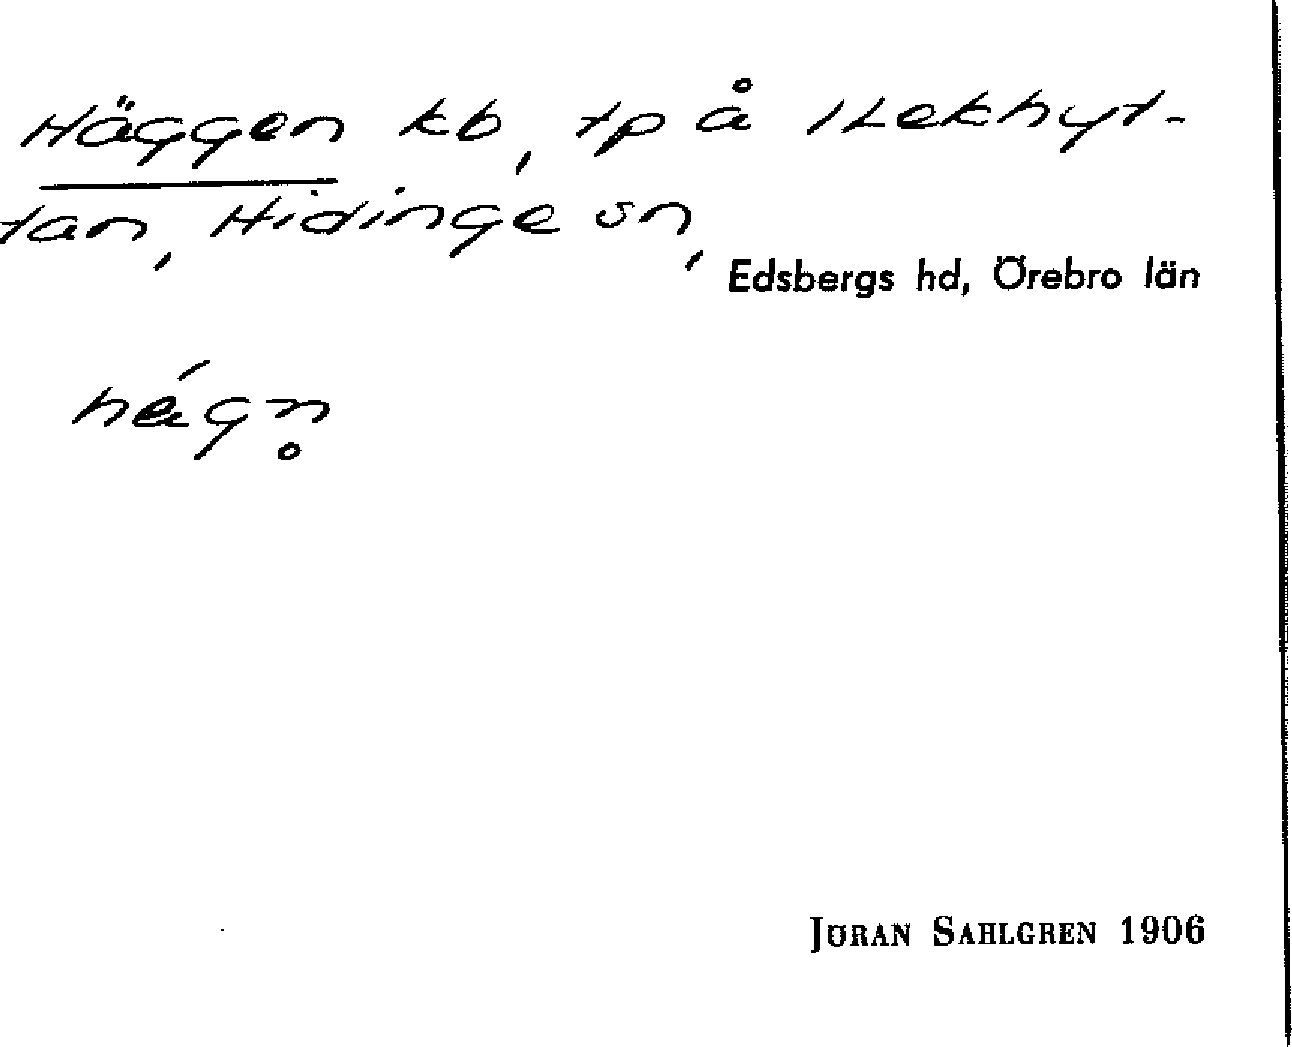 Häggen kb, tp å 1 Lekhyt-
tan, Hidinge sn,
Edsbergs hd, Örebro län
JÖRAN SAHLGREN 1906